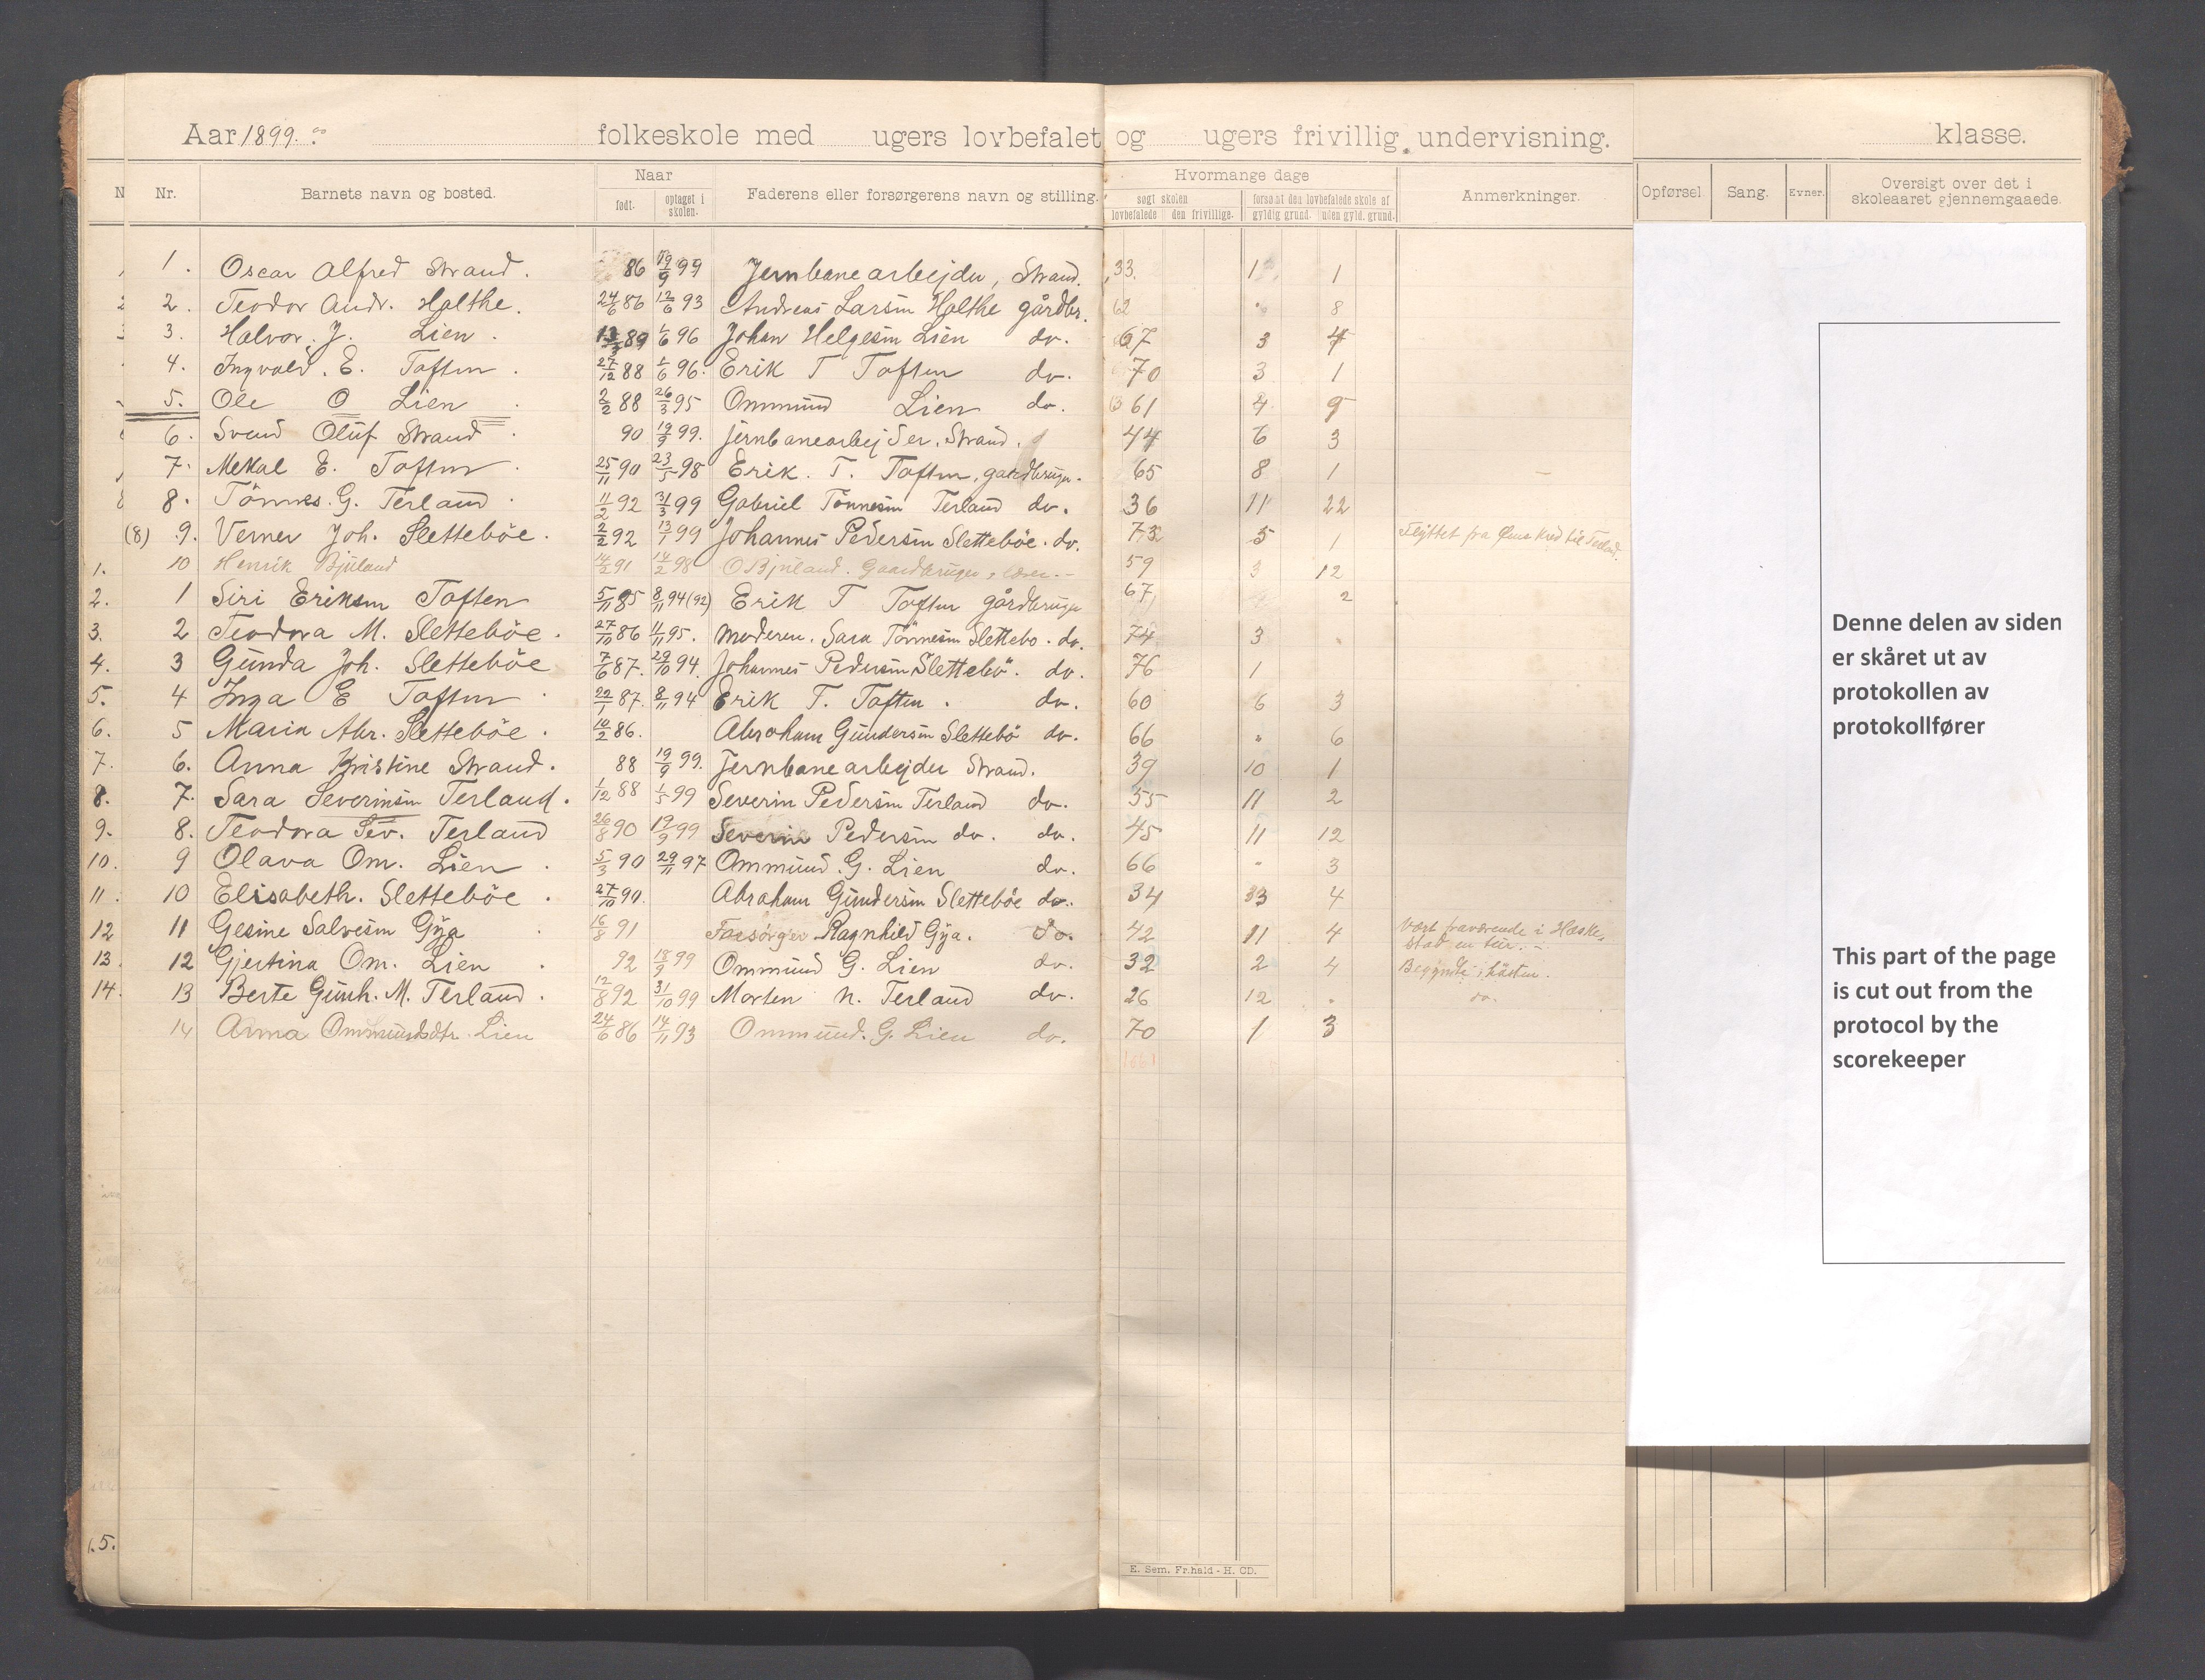 Aar 1899. folkeskole med ugers lovbefalet og ugers frivillig undervisning. klasse.
Nr. Barnets navn og bosted. Naar født. optaget i skolen. Faderens eller forsørgerens navn og stilling. Hvormange dage søgt skolen lovbefalede den frivillige. forsømt den lovbefalede skole af gyldig grund. uden gyld. grund. Anmerkninger. Opførsel. Sang. Evner. Oversigt over det i skoleaaret gjennemgaaede.
1. Oscar Alfred Strand. 86 19/9 99 Jernbanearbejder, Strand. 33. 1 1
2. Teodor Andr. Halthe. 24/6 86 12/6 93 Andreas Larsen Halthe gårdbr. 62 " 8
3. Halvor J. Lien. 89 1/6 96 Johan Helgesen Lien do. 67 3 4
4. Ingvald. E. Toften. 27/12 88 1/6 96. Erik T Toften do. 70 3 1
5. Ole O Lien 2/2 88 26/3 95 Ommund Lien do. 61 4 9
6. Svend Oluf Strand. 90 19/9 99. Jernbanearbejder. Strand. 44 6 3
7. Mekal E. Toften. 25/11 90 23/5 98 Erik. T. Toften, gardbruger. 65 8 1
8. Tönnes. G. Terland. 11/2 92 31/3 99 Gabriel Tönnesen Terland do. 36 11 22
(8) 9. Verner Joh. Slettebøe. 2/2 92 13/1 99 Johannes Pedersen Slettebøe. do. 73 5 1 Flyttet fra kred til Terland.
1. 10 Henrik Bjuland 91 14/2 98 O Bjuland. Gaardbruger, lærer. 59 3 12
2. 1 Siri Eriksen Toften 5/11 85 8/11 94 (92) Erik T Toften gårdbruger 67 2
3. 2 Teodora M. Slettebøe. 27/10 86 11/11 95. Moderen. Sara Tönnesen Slettebo. do. 74 3 .
4. 3 Gunda Joh. Slettebøe 7/6 87. 29/10 94. Johannes Pedersen Slettebö. do. 76 1
5. 4 Inga E Toften 22/1 87. 8/11 94 Erik T. Toften. do. 60 6 3
6. 5 Maria Abr. Slettebøe. 10/2 86. Abraham Gundersen Slettebö do. 66 " 6
7. 6. Anna Kristine Strand. 88 19/9 99. Jernbanearbejder Strand. 39 10 1
8. 7. Sara Severinsen Terland. 1/12 88 1/5 99 Severin Pedersen Terland do. 55 11 2
9. 8. Teodora Sev. Terland 26/8 90 19/9 99 Severin Pedersen do. do. 45 11 12
10. 9 Olava Om. Lien. 5/3 90 29/11 97 Ommund. G. Lien do. 66 " 3
11. 10 Elisabeth. Slettebøe. 27/10 90. Abraham Gundersen Slettebøe do. 34 33 4
12 11 Gesine Salvesen Gÿa 16/8 91 Forsørger Ragnhild Gÿa. do. 42 11 4 Vært fraværende i Heskestad en tur.
13. 12 Gjertina Om. Lien. 92 18/9 99 Ommund G. Lien do. 32 2 4 Begyndte i hösten.
14. 13 Berte Gunh. M. Terland. 12/8 92 31/10 99 Morten N. Terland do. 26 12 . do.
14 Anna Ommundsdtr. Lien 24/6 86 14/11 93 Ommund. G. Lien do. 70 1 3
Denne delen av siden
er skåret ut av
protokollen av
protokollfører
This part of the page
is cut out from the
protocol by the
scorekeeper
E. Sem. Fr.hald - H. CD.